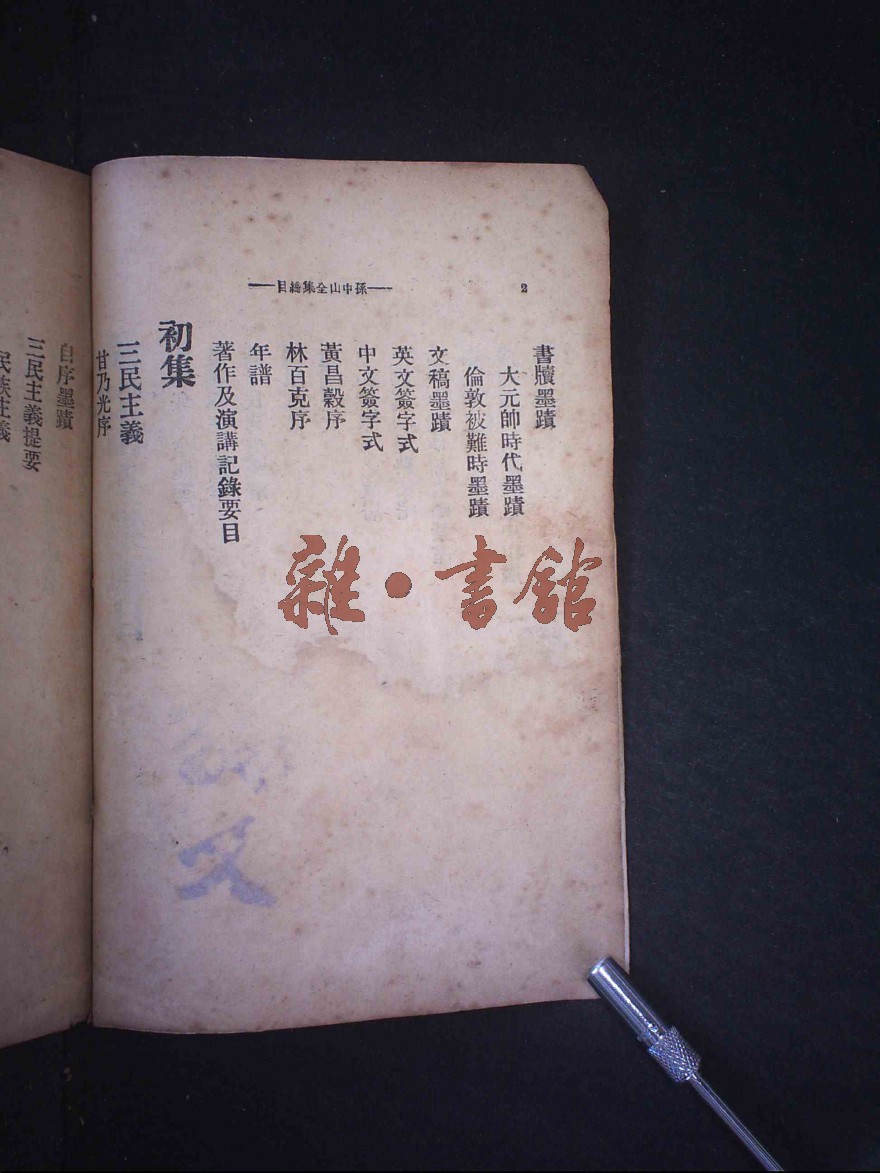 2
——孫中山全集總目——
書牘墨蹟
大元帥時代墨蹟
倫敦被難時墨蹟
文稿墨蹟
英文簽字式
中文簽字式
黃昌穀序
林百克序
年譜
著作及演講記錄要目
初集
三民主義
甘乃光序
自序墨蹟
三民主義提要
民族主義
雜·書館
文